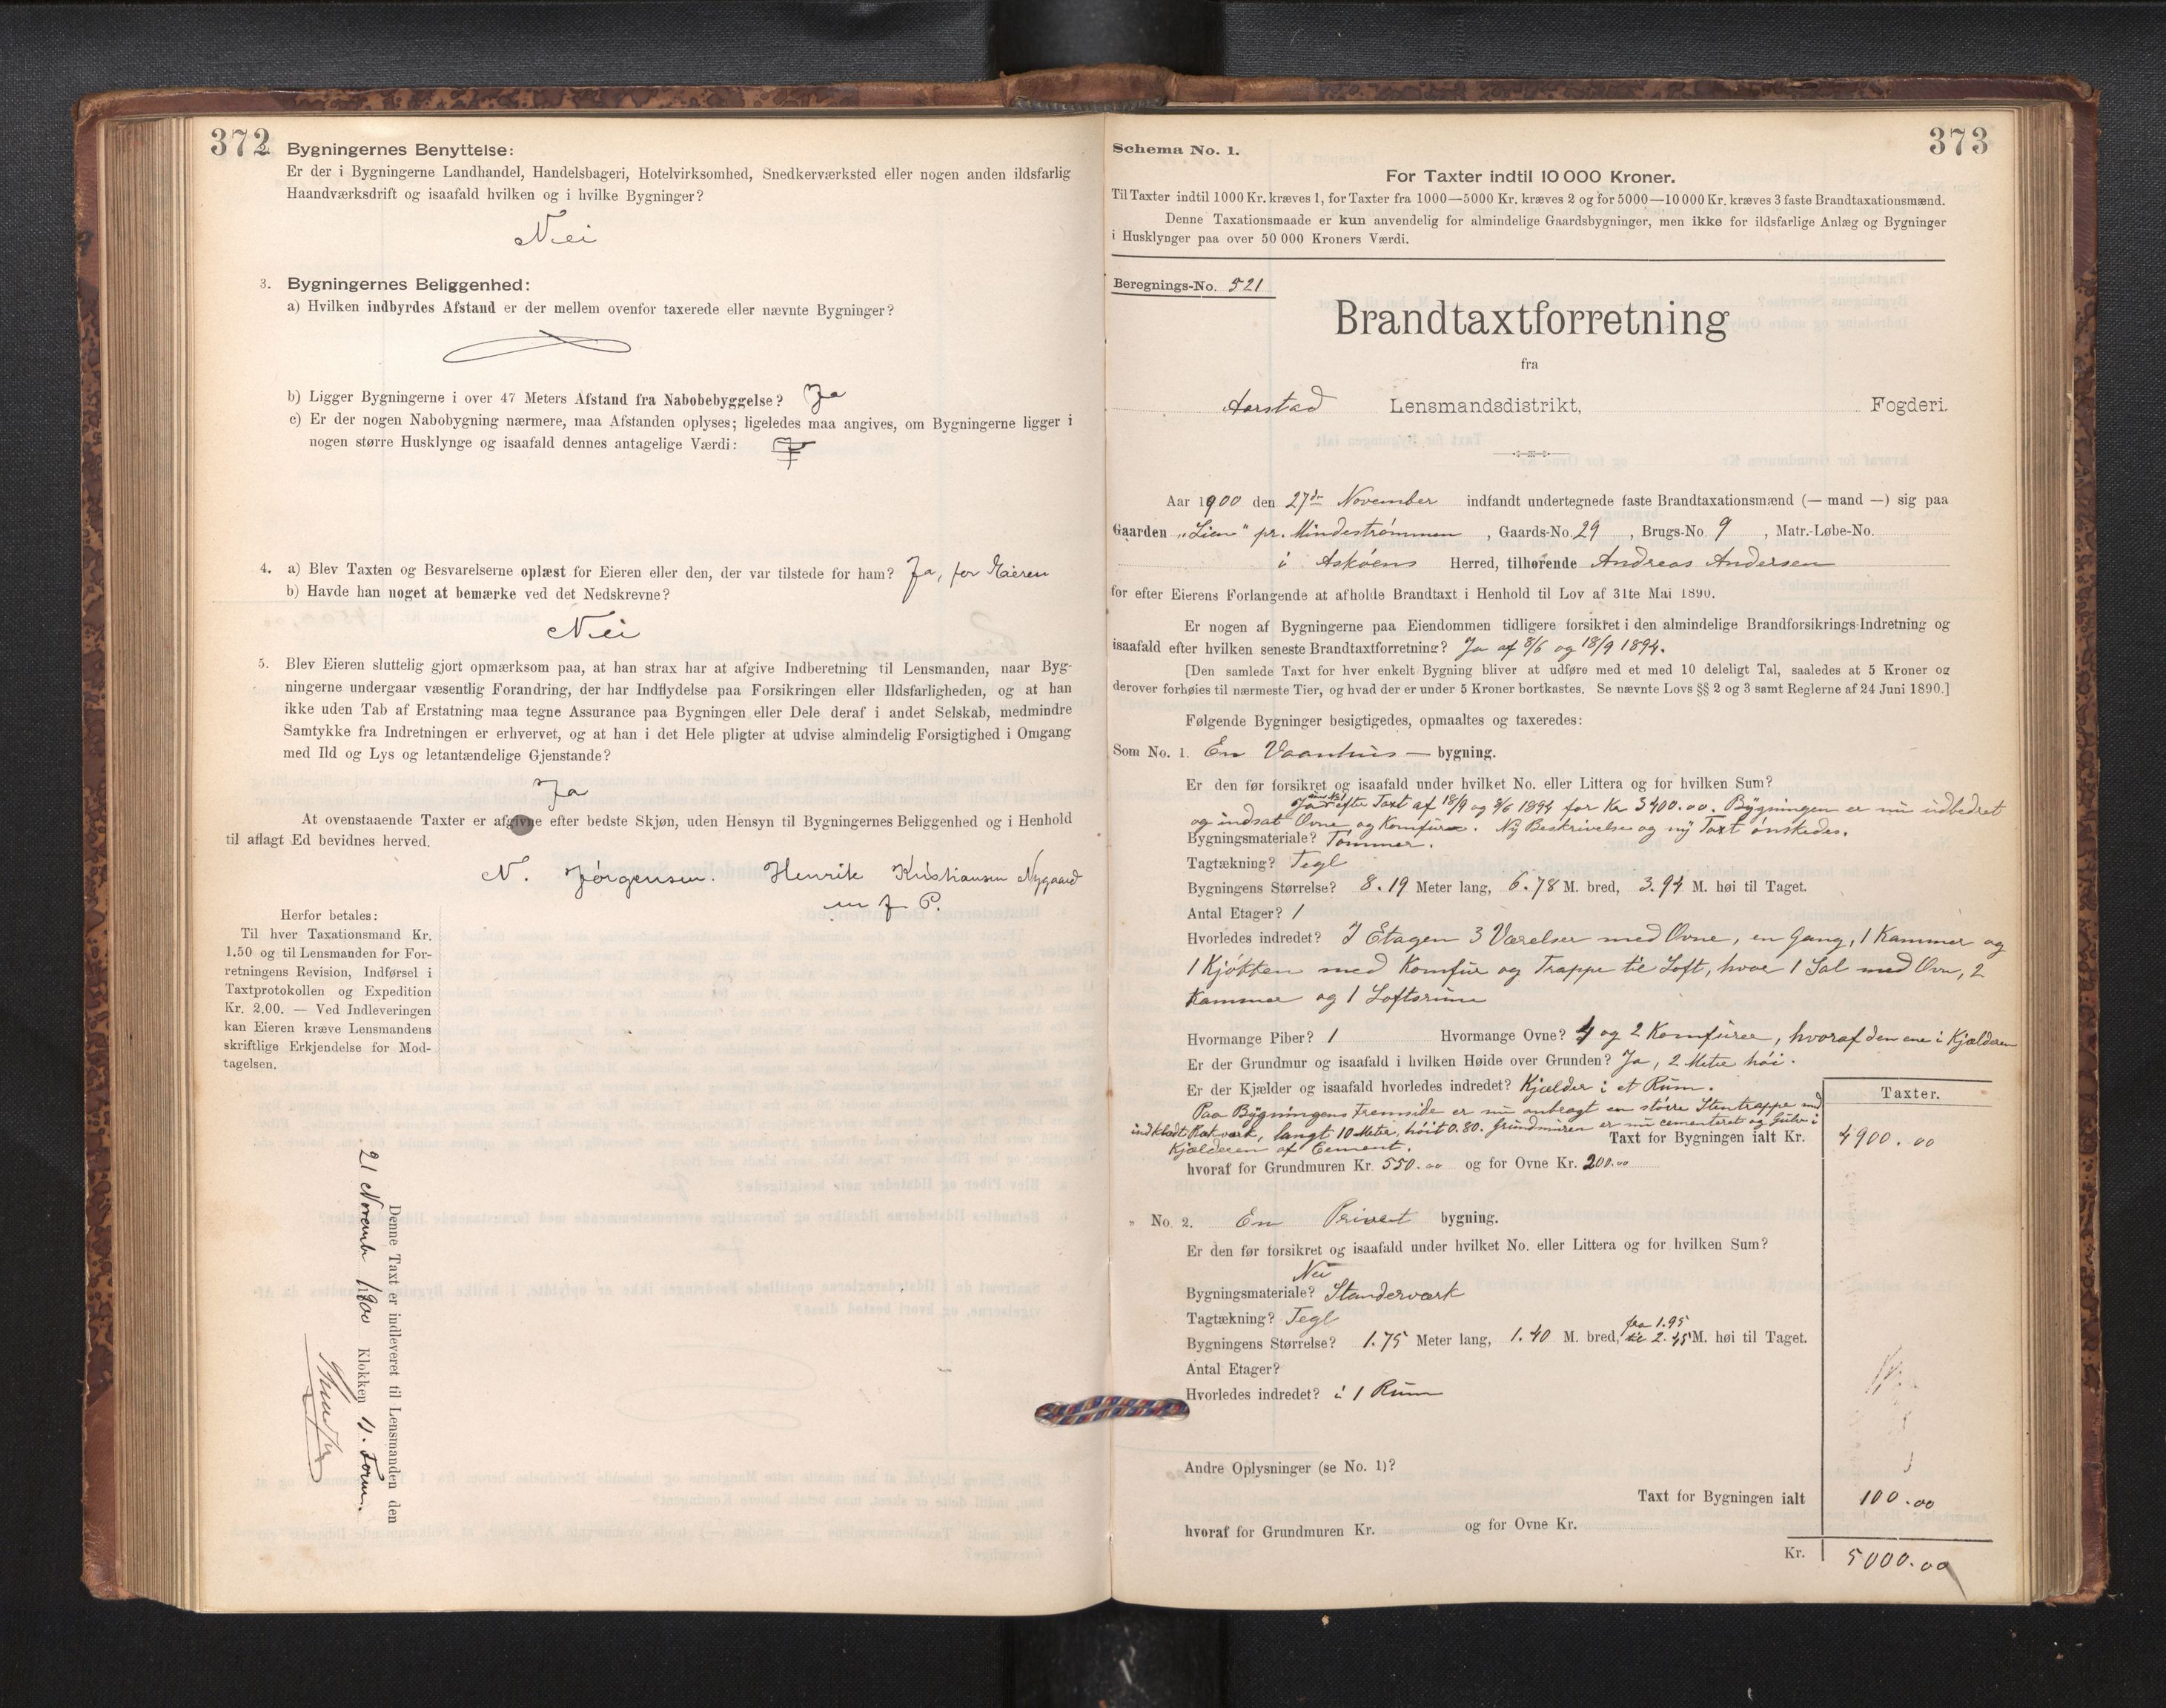 372
Bygningernes Benyttelse:
Er der i Bygningerne Landhandel, Handelsbageri, Hotelvirksomhed, Snedkerværksted eller nogen anden ildsfarlig
Haandværksdrift og isaafald hvilken og i hvilke Bygninger?
Nei
3. Bygningernes Beliggenhed:
a) Hvilken indbyrdes Afstand er der mellem ovenfor taxerede eller nævnte Bygninger?
b) Ligger Bygningerne i over 47 Meters Afstand fra Nabobebyggelse? Ja
c) Er der nogen Nabobygning nærmere, maa Afstanden oplyses; ligeledes maa angives, om Bygningerne ligger i
nogen større Husklynge og isaafald dennes antagelige Værdi:
4. a) Blev Taxten og Besvarelserne oplæst for Eieren eller den, der var tilstede for ham? Ja, for Eieren
b) Havde han noget at bemærke ved det Nedskrevne?
Nei
5. Blev Eieren sluttelig gjort opmærksom paa, at han strax har at afgive Indberetning til Lensmanden, naar Byg-
ningerne undergaar væsentlig Forandring, der har Indflydelse paa Forsikringen eller Ildsfarligheden, og at han
ikke uden Tab af Erstatning maa tegne Assurance paa Bygningen eller Dele deraf i andet Selskab, medmindre
Samtykke fra Indretningen er erhvervet, og at han i det Hele pligter at udvise almindelig Forsigtighed i Omgang
med Ild og Lys og letantændelige Gjenstande?
Ja
At ovenstaaende Taxter er afgivne efter bedste Skjøn, uden Hensyn til Bygningernes Beliggenhed og i Henhold
til aflagt Ed bevidnes herved.
N. Jörgensen. Henrik Kristiansen Nygaard
m f P.
Herfor betales:
Til hver Taxationsmand Kr.
1.50 og til Lensmanden for For-
retningens Revision, Indførsel i
Taxtprotokollen og Expedition
Kr. 2.00. — Ved Indleveringen
kan Eieren kræve Lensmandens
skriftlige Erkjendelse for Mod-
tagelsen.
Denne Taxt er indleveret til Lensmanden den
21 Novemb 1900 Klokken 11. Form.
373
Schema No. 1.
For Taxter indtil 10 000 Kroner.
Til Taxter indtil 1000 Kr. kræves 1, for Taxter fra 1000—5000 Kr. kræves 2 og for 5000—10 000 Kr. kræves 3 faste Brandtaxationsmænd.
Denne Taxationsmaade er kun anvendelig for almindelige Gaardsbygninger, men ikke for ildsfarlige Anlæg og Bygninger
i Husklynger paa over 50 000 Kroners Værdi.
Beregnings-No. 521
Brandtaxtforretning
fra
Aarstad Lensmandsdistrikt, Fogderi.
Aar 1900 den 27de November indfandt undertegnede faste Brandtaxationsmænd (— mand —) sig paa
Gaarden "Lien" pr. Mindestrømmen, Gaards-No. 29, Brugs-No. 9, Matr.-Løbe-No.
i Askøens Herred, tilhørende Andreas Andersen
for efter Eierens Forlangende at afholde Brandtaxt i Henhold til Lov af 31te Mai 1890.
Er nogen af Bygningerne paa Eiendommen tidligere forsikret i den almindelige Brandforsikrings-Indretning og
isaafald efter hvilken seneste Brandtaxtforretning? Ja af 8/6 og 18/9 1894.
[Den samlede Taxt for hver enkelt Bygning bliver at udføre med et med 10 deleligt Tal, saaledes at 5 Kroner og
derover forhøies til nærmeste Tier, og hvad der er under 5 Kroner bortkastes. Se nævnte Lovs §§ 2 og 3 samt Reglerne af 24 Juni 1890.]
Følgende Bygninger besigtigedes, opmaaltes og taxeredes:
Som No. 1. En Vaanhus — bygning.
Er den før forsikret og isaafald under hvilket No. eller Littera og for hvilken Sum?
Ja efter Taxt af 18/9 og 8/6 1894 for Kr 3400.00. Bygningen er nu udbedret
og indsat Ovne og Komfure. Ny Beskrivelse og ny Taxt ønskedes.
Bygningsmateriale? Tömmer.
Tagtækning? Tegl
Bygningens Størrelse? 8.19 Meter lang, 6.78 M. bred, 3.94 M. høi til Taget.
Antal Etager? 1
Hvorledes indredet? I Etagen 3 Værelser med Ovne, en Gang, 1 Kammer og
1 Kjökken med Komfur og Trappe til Loft, hvor 1 Sal med Ovn, 2
Kammer og 1 Loftsrum
Hvormange Piber? 1 Hvormange Ovne? 4 og 2 Komfürer, hvoraf den ene i Kjælderen
Er der Grundmur og isaafald i hvilken Høide over Grunden? Ja, 2 Meter höi.
Er der Kjælder og isaafald hvorledes indredet? Kjælder i et Rum.
Taxter.
Paa Bygningens Fremside er nu anbragt en större Stentrappe med
indklædt Rækværk, langt 10 Meter, höit 0.80. Grundmuren er nu cementeret og Gulv i
Kjælderen af Cement.
Taxt for Bygningen ialt Kr. 4900.00
hvoraf for Grundmuren Kr. 550.00 og for Ovne Kr. 200.00
" No. 2. En Privet bygning.
Er den før forsikret og isaafald under hvilket No. eller Littera og for hvilken Sum?
Nei
Bygningsmateriale? Standerværk
Tagtækning? Tegl
Bygningens Størrelse? 1.75 Meter lang, 1.40 M. bred, fra 1.95 til 2.45 M. høi til Taget.
Antal Etager?
Hvorledes indredet? i 1 Rum
Andre Oplysninger (se No. 1)?
Taxt for Bygningen ialt 100.00
hvoraf for Grundmuren Kr. og for Ovne Kr.
Kr. 5000.00